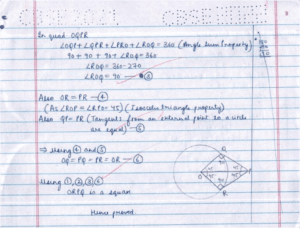 CBSE
In quad OQPR
∠OQP + ∠QPR + ∠PRO + ∠ROQ = 360 (Angle Sum Property)
90 + 90 + 90 + ∠ROQ = 360
∠ROQ = 360 - 270
∠ROQ = 90 — ③
Also OR = PR — ④
(As ∠ROP = ∠RPO = 45) (Isosceles triangle property)
Also QP = PR (Tangents from an external point to a circle
are equal) — ⑤
⇒ Using ④ and ⑤
OQ = PQ = PR = OR — ⑥
Using ①, ②, ③, ⑥
ORPQ is a square
Hence proved
Q
O
P
R